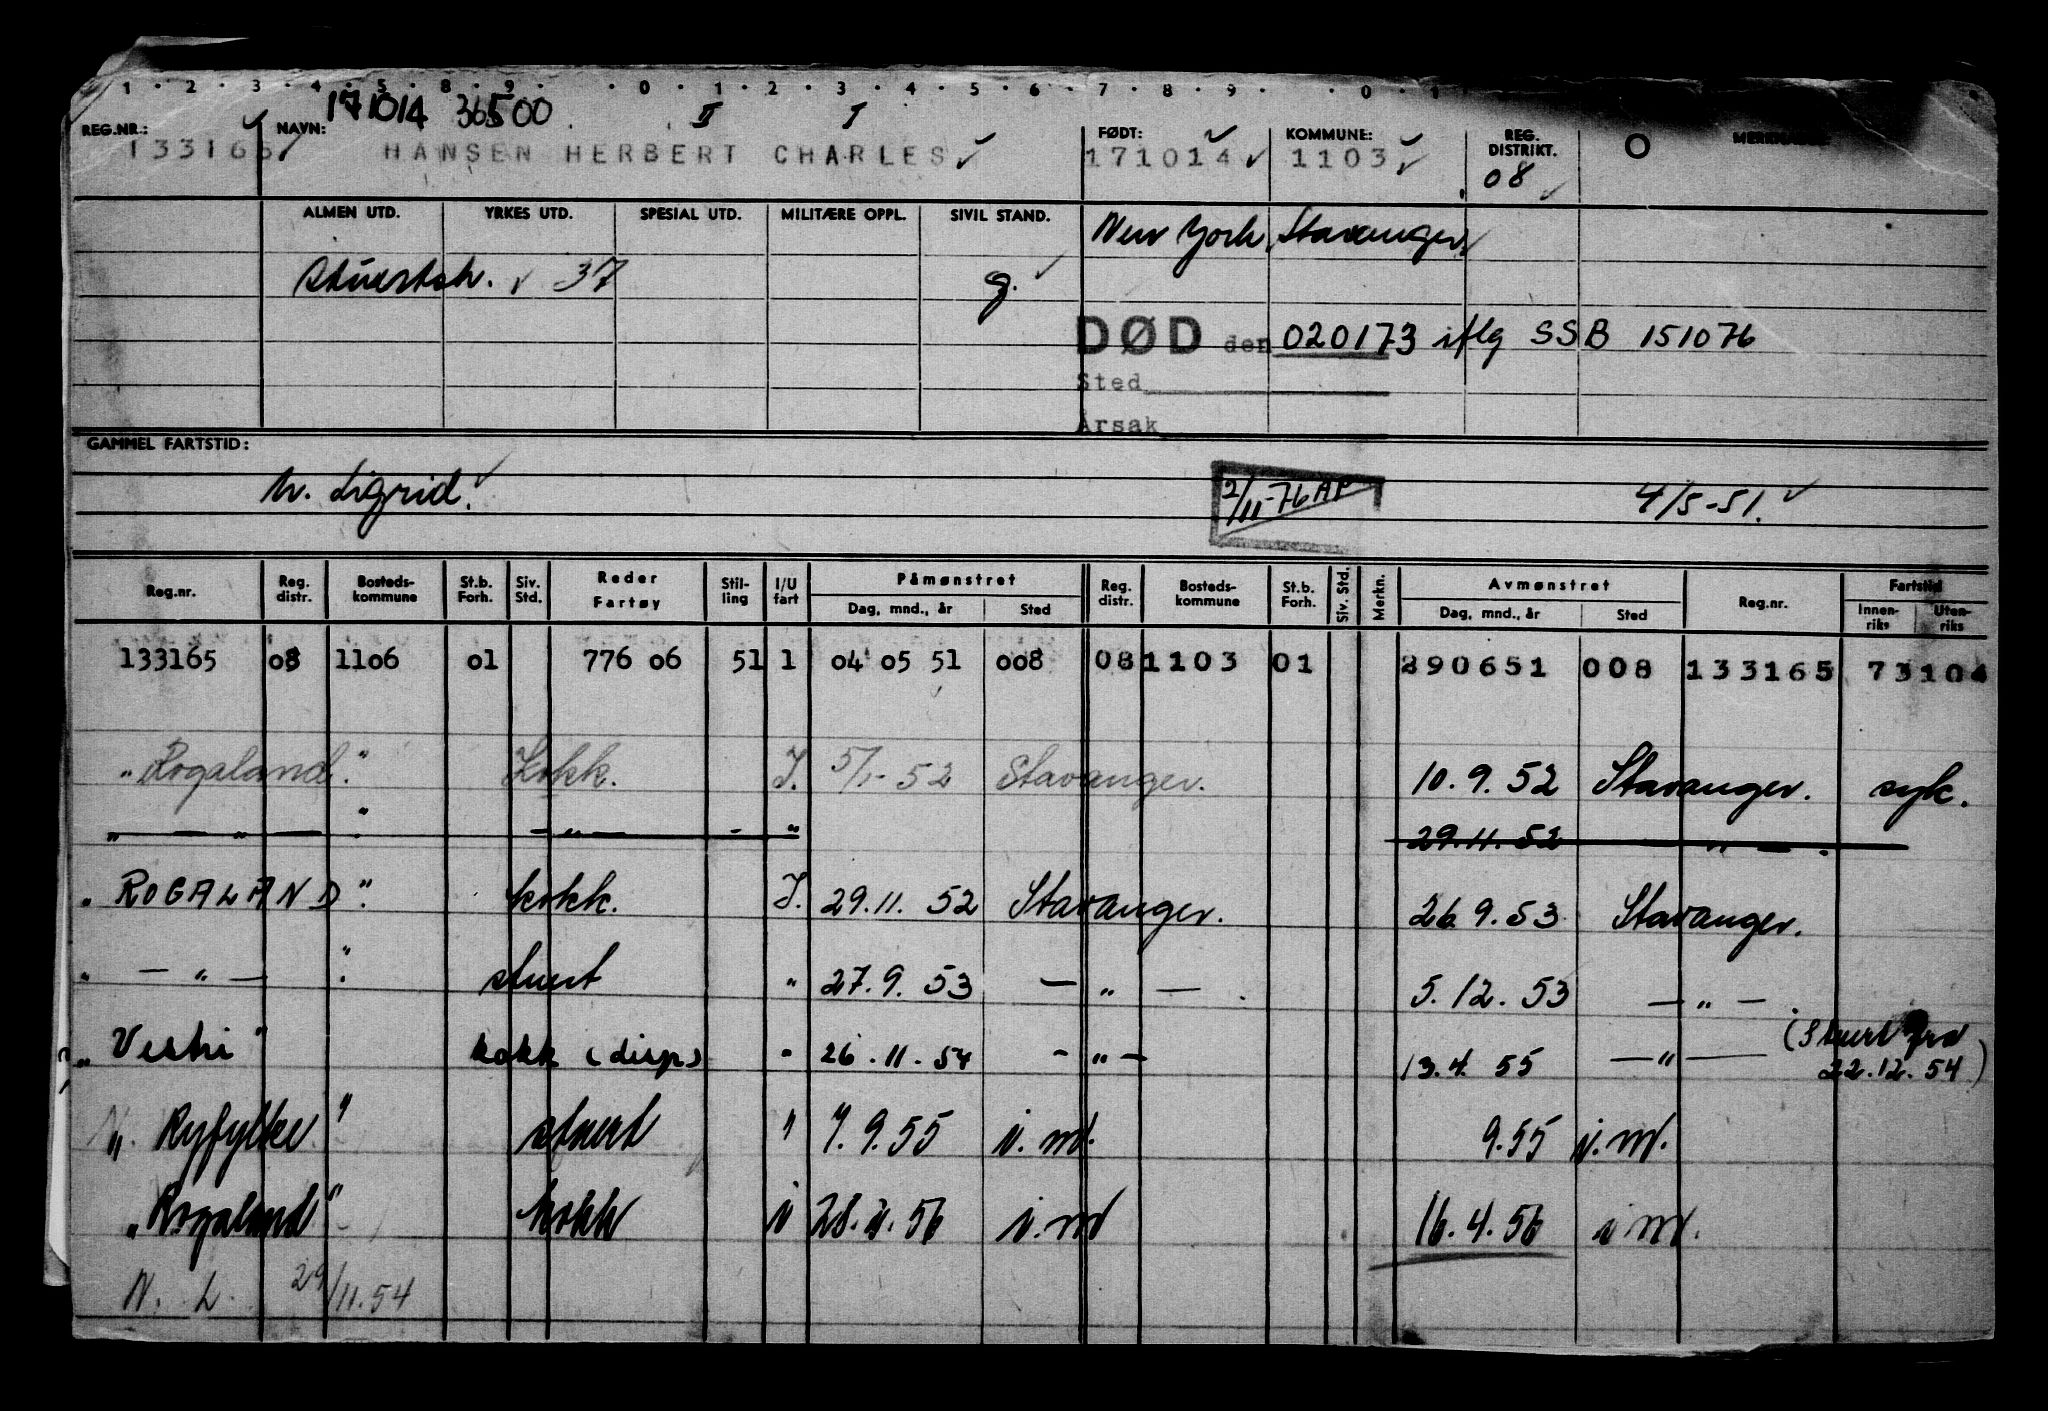 1 . 2 . 3 . 4 . 5 . 8 . 9 . . 0 . 1 . 2 . 3 . 4 . 5 . 6 . 7 . 8 . 9 . . 0 . 1
171014 36500 II I
REG.NR.: NAVN: FØDT: KOMMUNE: REG. DISTRIKT. O
133165 HANSEN HERBERT CHARLES 171014 1103 08
ALMEN UTD. YRKES UTD. SPESIAL UTD. MILITÆRE OPPL. SIVIL STAND. New York Stavanger
stuertsk. 37 g.
DØD den 020173 iflg SSB 151076
Sted
Årsak
GAMMEL FARTSTID:
h. Sigrid. 2/11-76 AP 4/5-51.
Reg.nr. Reg. distr. Bosteds-kommune St.b. Forh. Siv. Std. Reder Fartøy Stil-ling I/U fart Påmønstret Dag, mnd., år Sted Reg. distr. Bosteds-kommune St.b. Forh. Siv. Std. Merkn. Avmønstret Dag, mnd., år Sted Reg.nr. Fartstid Innen-riks Uten-riks
133165 08 1106 01 776 06 51 1 04 05 51 008 08 1103 01 290651 008 133165 73104
"Rogaland." Kokk. I. 5/1-52 Stavanger. 10.9.52 Stavanger. syk.
" — " — " - " — - " 29.11.52 " — .
" ROGALAND " kokk. I. 29.11. 52 Stavanger. 26.9.53 Stavanger.
" — " — " stuert " 27.9.53 — " — . 5.12.53 — " — .
"Vestri" kokk (disp) " 26.11.54 - " - 13.4.55 — " — (Stuert fra 22.12.54)
" Ryfylke " stuert " 7.9.55 i.m. 9.55 i.m.
"Rogaland" kokk i 28.2.56 i.m 16.4.56 i m.
N. L. 29/11.54